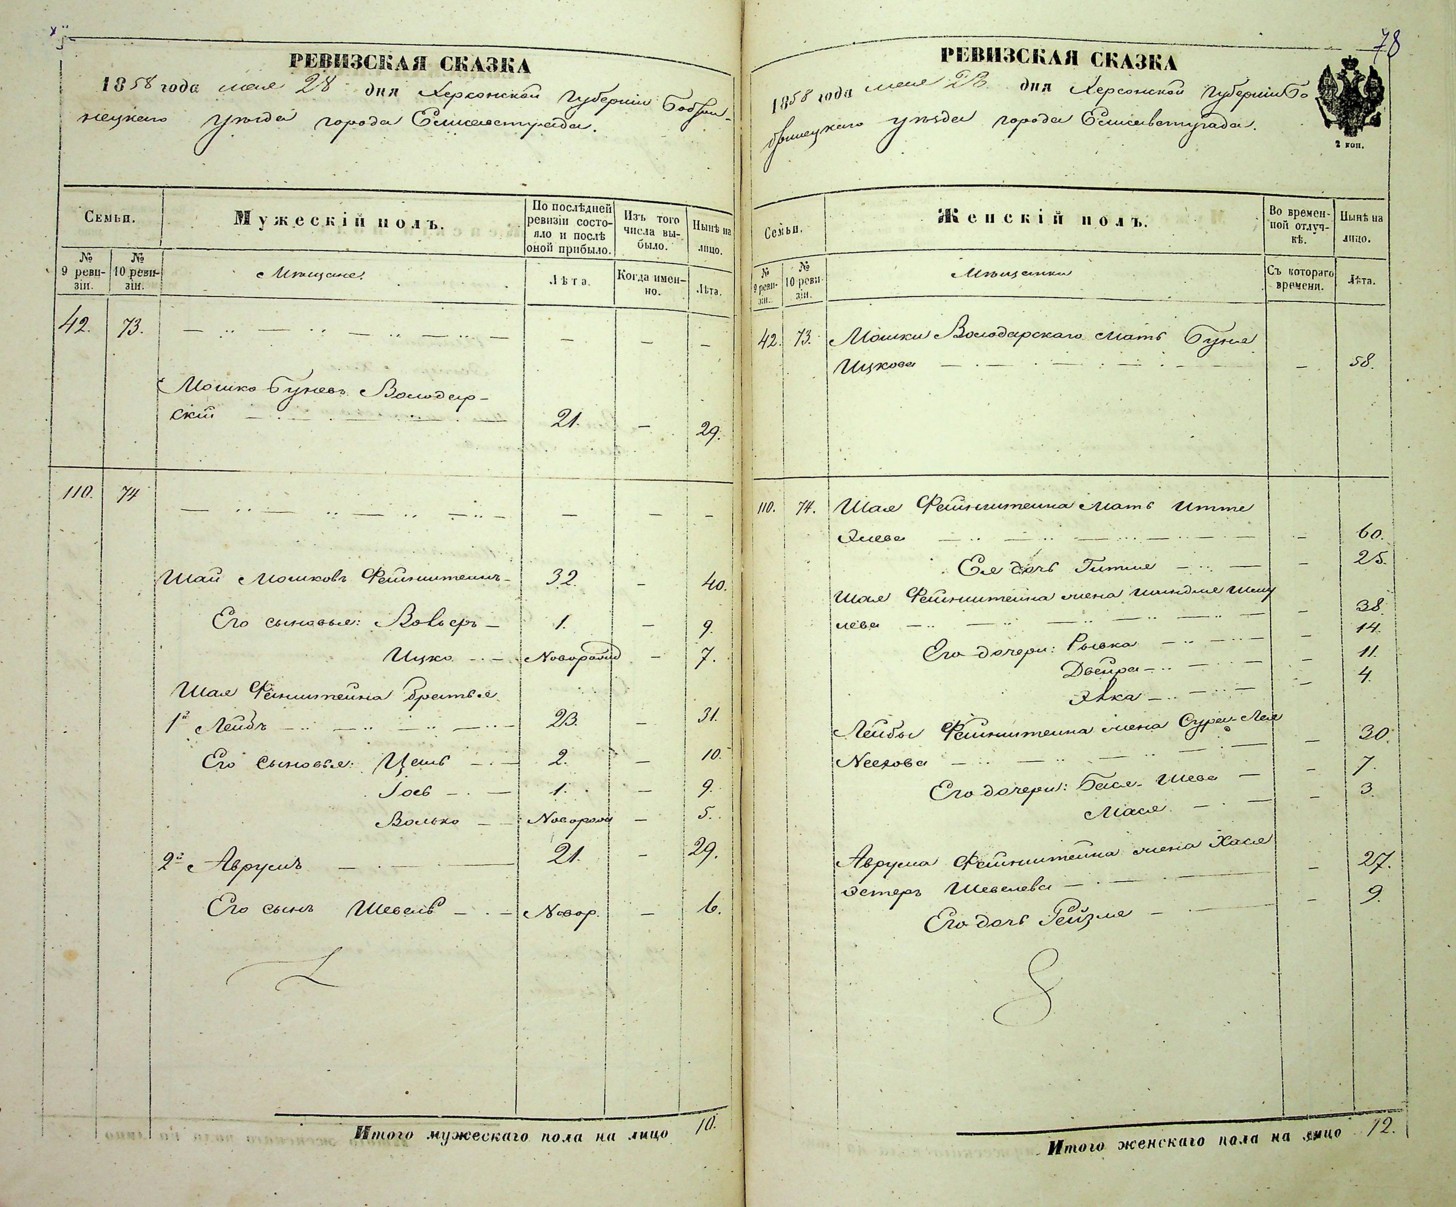 78
РЕВИЗСКАЯ СКАЗКА
1858 года мая 28 дня Херсонской Губерніи Бобри-
нецкаго уѣзда города Елисаветграда.
Семьи.
Мужескій полъ.
По послѣдней ревизіи состояло и послѣ оной прибыло.
Изъ того числа выбыло.
Нынѣ на лицо.
№ 9 ревизіи.
№ 10 ревизіи.
Мѣщане:
Лѣта.
Когда именно.
Лѣта.
42. 73. — — —
Мошко Буневъ Володар-
скій 21. — 29.
110. 74 — — —
Шай Мошковъ Фейнштейнъ 32. — 40.
Его сыновья: Вольфъ — 1. — 9.
Ицко — Новорожд — 7.
Шая Фейнштейна братья
1й Лейбъ 23. — 31.
Его сыновья: 2. — 10.
Іось — 1. — 9.
Волько — Новорож — 5.
2й Аврумъ — 21. — 29.
Его сынъ Шевель — Новор. — 6.
Итого мужескаго пола на лицо 10.
РЕВИЗСКАЯ СКАЗКА
1858 года мая 28 дня Херсонской Губерніи Бо-
бринецкаго уѣзда города Елисаветграда.
2 коп.
Семьи.
Женскій полъ.
Во временной отлучкѣ.
Нынѣ на лицо.
№ 9 ревизіи.
№ 10 ревизіи.
Мѣщанки
Съ котораго времени.
Лѣта.
42. 73. Мошки Володарскаго мать Буня
Ицкова — 58.
110. 74. Шая Фейнштейна мать Итте
— 60.
Ея дочь Гитля — 25.
Шая Фейнштейна жена Шиндля Шму
лева — 38.
Его дочери: Рывка — 14.
Двейра — 11.
Хавка — 4.
Лейбы Фейнштейна жена Сура-Лея
— 30.
Его дочери: Бася-Шева — 7.
Мася — 3.
Аврума Фейнштейна жена Хася
Эстеръ Шевелева — 27.
Его дочь Рейзля — 9.
Итого женскаго пола на лицо 12.